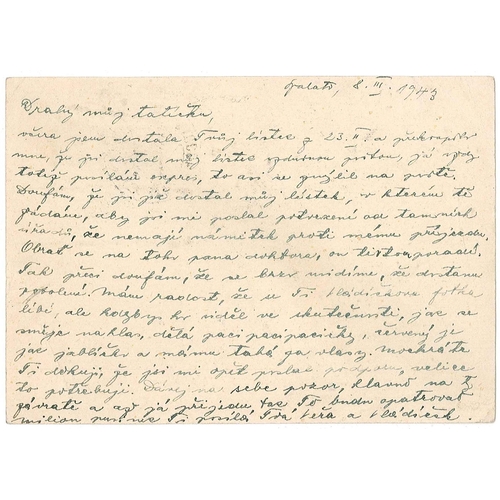 8. III. 1943
Drahý můj tatíčku,
včera jsem dostala Tvůj lístek z 23. II. a překvapilo
mne, že jsi dostal můj lístek, já vždy
posílám expres, to asi se na poště.
Doufám, že jsi již dostal můj lístek, v kterém tě
žádám, aby jsi mi poslal potvrzení od tamních
úřadů, že nemají námitek proti mému příjezdu.
Obrať se na toho pana doktora, on ti to poradí.
Tak přeci doufám, že se brzy uvidíme, že dostanu
povolení. Mám radost, že se Ti Vládíčkova fotka
líbí, ale kdybys ho viděl ve skutečnosti, jak se
směje nahlas, dělá paci paci pacičky, červený je
jak jablíčko a mámu tahá za vlasy. Mockráte
Ti děkuji, že jsi mi opět poslal podporu, velice
to potřebuji. Dávej na sebe pozor, hlavně na
závratě a až já přijedu, tak Tě budu opatrovat
milion pus Ti posílá Tvá Věra a Vládíček.